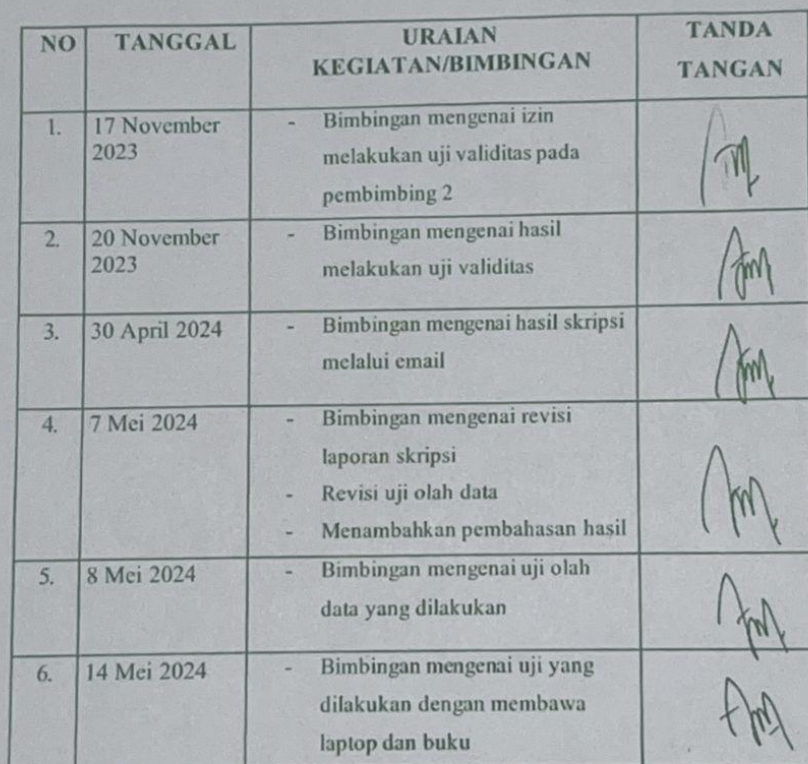 NO TANGGAL URAIAN KEGIATAN/BIMBINGAN TANDA TANGAN
1. 17 November 2023 - Bimbingan mengenai izin
melakukan uji validitas pada
pembimbing 2
2. 20 November 2023 - Bimbingan mengenai hasil
melakukan uji validitas
3. 30 April 2024 - Bimbingan mengenai hasil skripsi
melalui email
4. 7 Mei 2024 - Bimbingan mengenai revisi
laporan skripsi
- Revisi uji olah data
- Menambahkan pembahasan hasil
5. 8 Mei 2024 - Bimbingan mengenai uji olah
data yang dilakukan
6. 14 Mei 2024 - Bimbingan mengenai uji yang
dilakukan dengan membawa
laptop dan buku